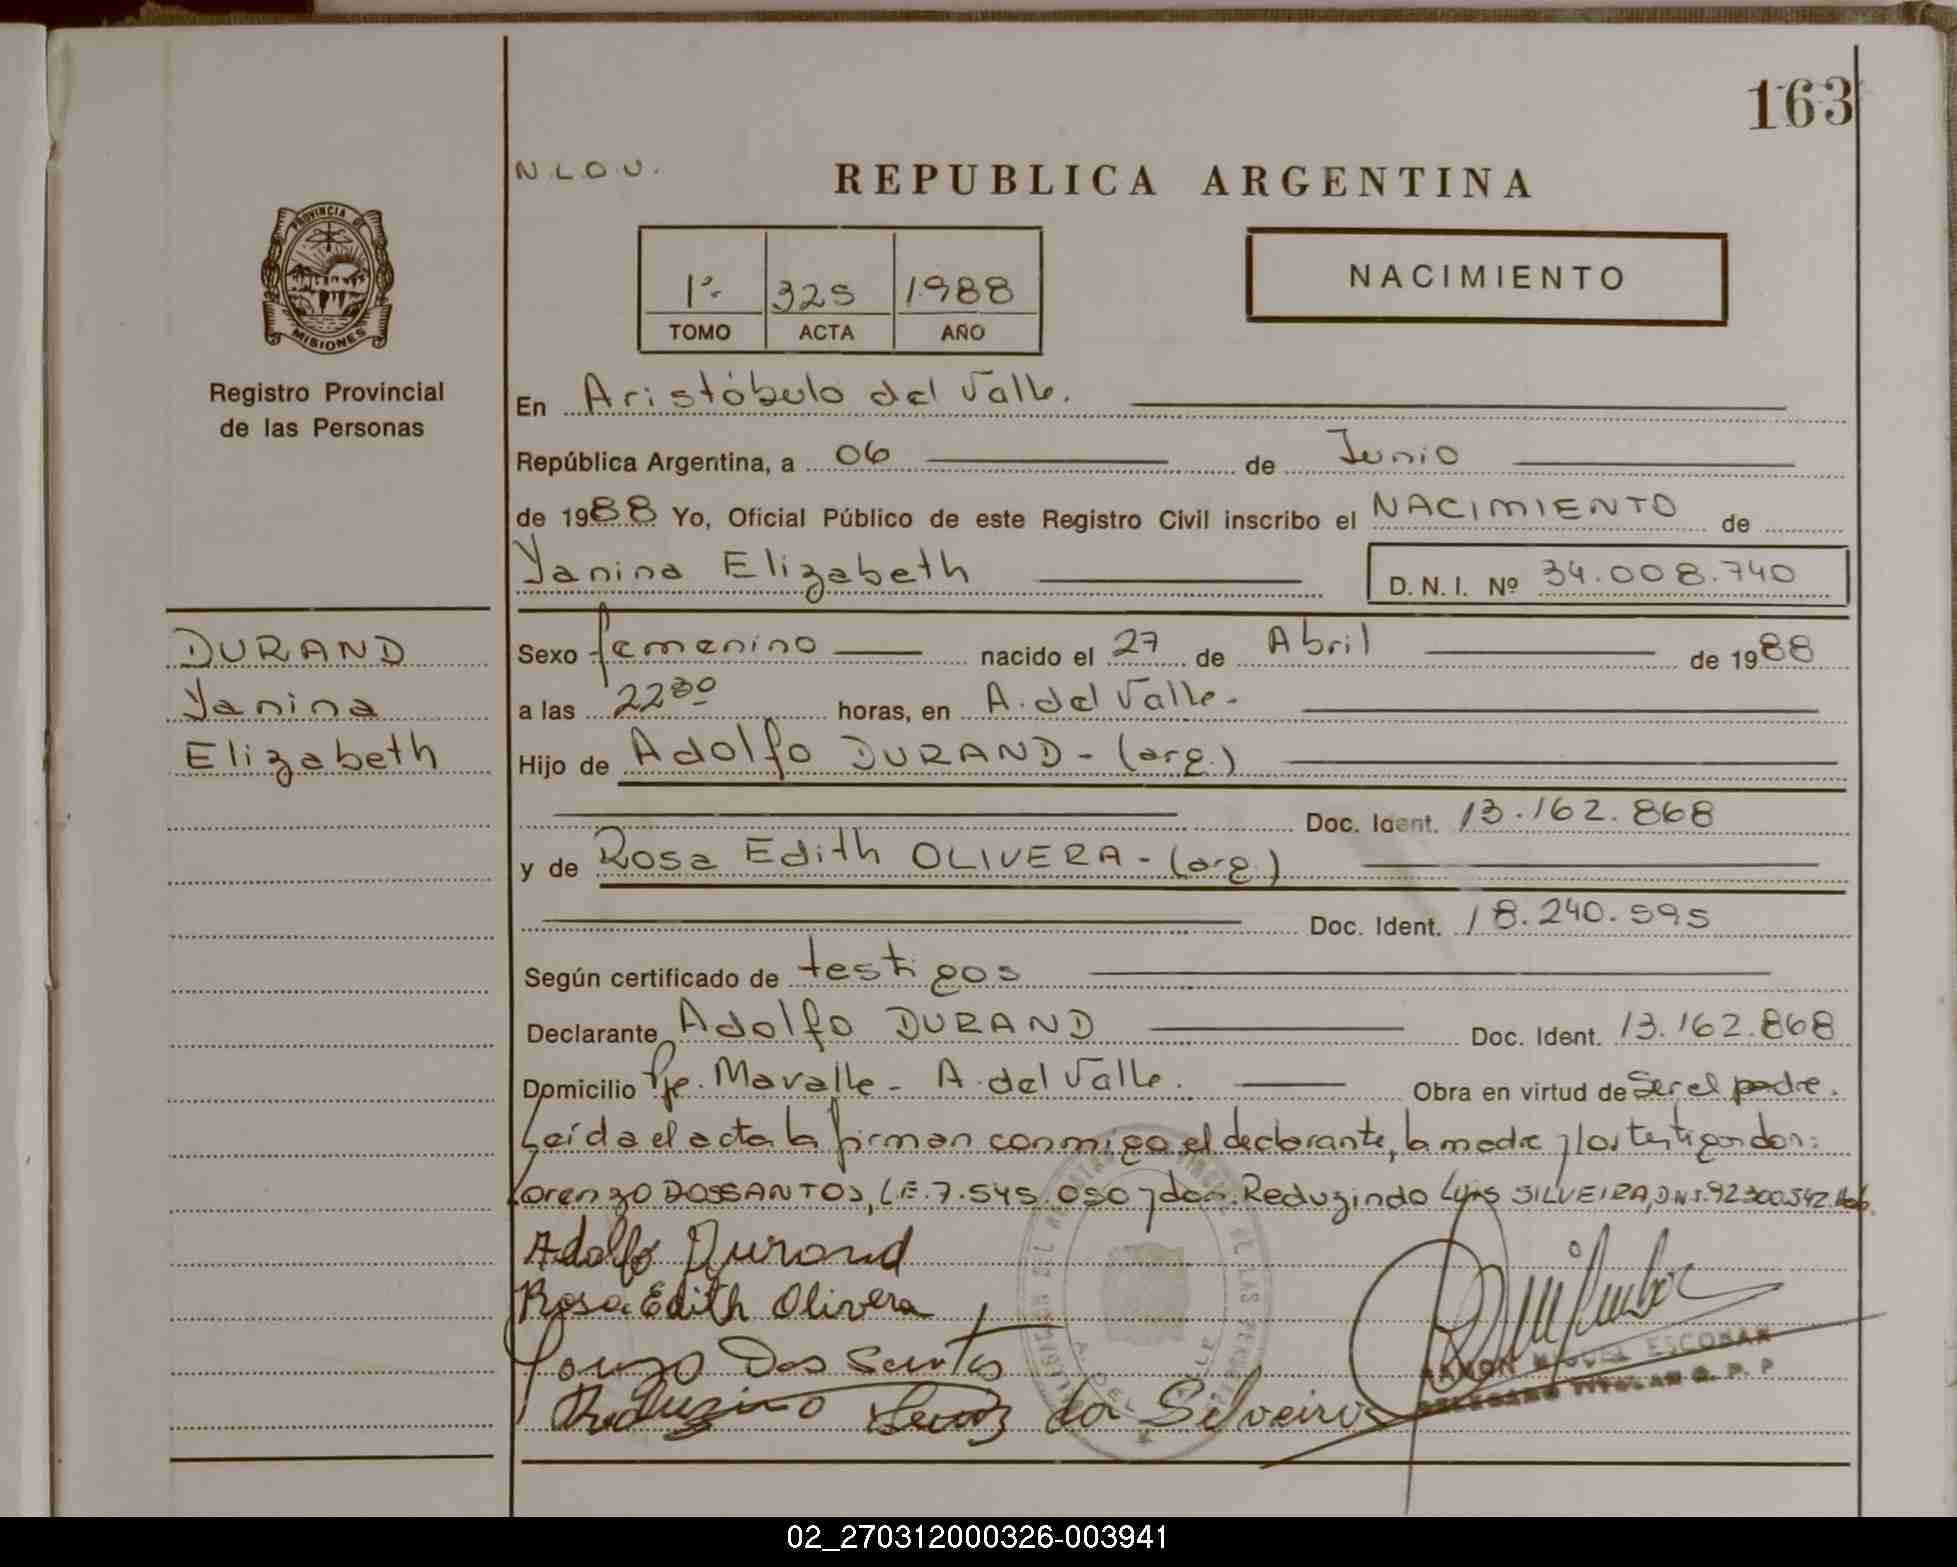 163
N.L.O.U.
REPUBLICA ARGENTINA
PROVINCIA DE
MISIONES
1º- 325 1988
TOMO ACTA AÑO
NACIMIENTO
Registro Provincial
de las Personas
En Aristóbulo del Valle.
República Argentina, a 06 de Junio
de 1988 Yo, Oficial Público de este Registro Civil inscribo el NACIMIENTO de
Yanina Elizabeth D.N.I. Nº 34.008.740
DURAND
Yanina
Elizabeth
Sexo femenino nacido el 27 de Abril de 1988
a las 22³⁰ horas, en A. del Valle-
Hijo de Adolfo DURAND- (arg.)
Doc. Ident. 13.162.868
y de Rosa Edith OLIVERA- (arg.)
Doc. Ident. 18.240.595
Según certificado de testigos
Declarante Adolfo DURAND Doc. Ident. 13.162.868
Domicilio Pje. Mavalle- A. del Valle. Obra en virtud de Ser el padre.
Leída el acta la firman conmigo el declarante, la madre y los testigos don:
Lorenzo DOSSANTOS, L.E. 7.545.050 y don Reduzindo Luis SILVEIRA, DNI. 92.300.542
Adolfo Durand
Rosa Edith Olivera
Dos Santos
da Silveira
RAMON MIGUEL ESCOBAR
DELEGADO TITULAR R. P. P
02_270312000326-003941